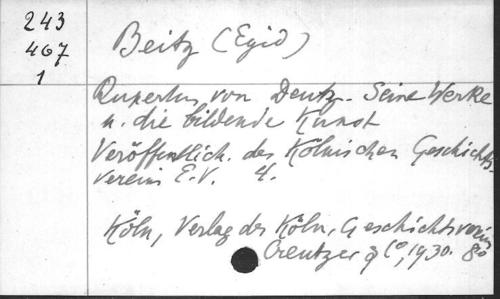 243
467
1
Beitz (Egid)
Rupertus von Deutz. Seine Werke
u. die bildende Kunst
Veröffentlich. des Kölnischen Geschichts-
vereins E.V. 4.
Köln, Verlag des Köln. Geschichtsvereins
Creutzer & Co, 1930. 8o